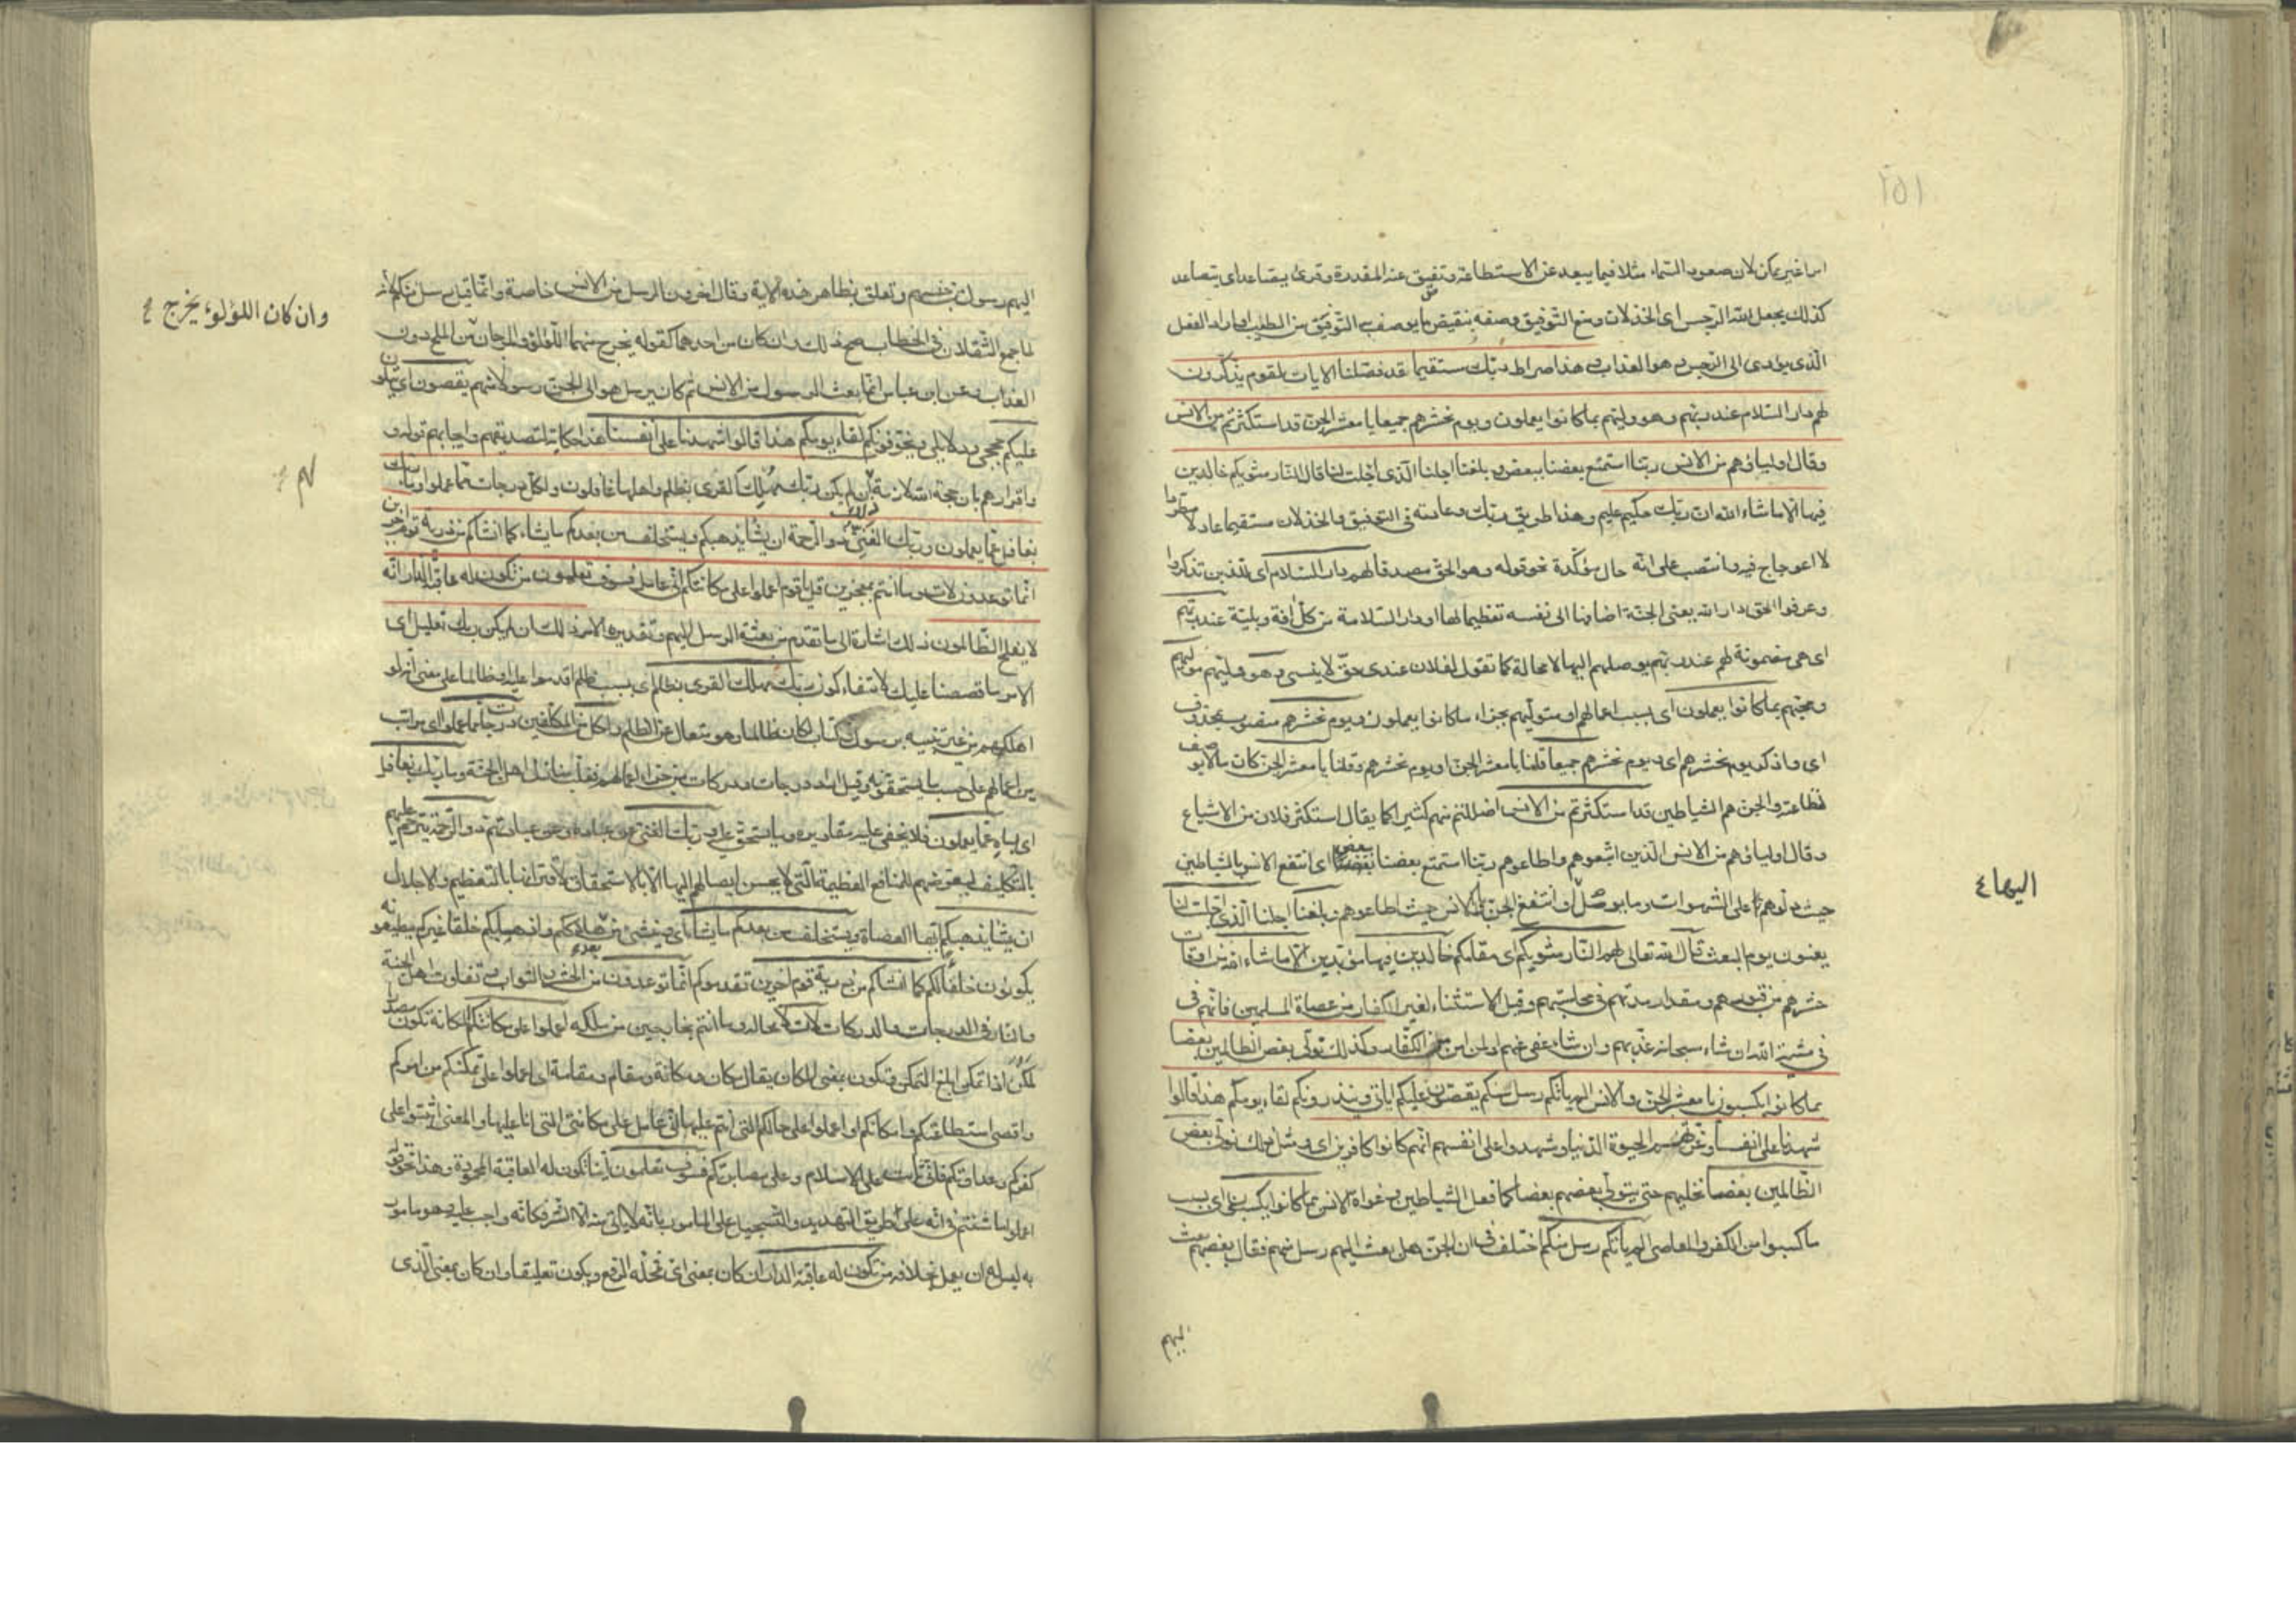 امرا غير ممكن لان صعود السماء مثلا فيما يبعد عن الاستطاعة وتضيق عنه المقدرة وقرئ يصاعد اى يتصاعد
كذلك يجعل الله الرجس اى الخذلان ومنع التوفيق وصفه بنقيض ما يوصف به التوفيق من الطيب او اراد الفعل
الذى يؤدى الى الرجس وهو العذاب وهذا صراط ربك مستقيما قد فصلنا الايات لقوم يذكرون
لهم دار السلام عند ربهم وهو وليهم بما كانوا يعملون ويوم نحشرهم جميعا يا معشر الجن قد استكثرتم من الانس
وقال اولياؤهم من الانس ربنا استمتع بعضنا ببعض وبلغنا اجلنا الذى اجلت لنا قال النار مثويكم خالدين
فيها الا ما شاء الله ان ربك حكيم عليم وهذا طريق ربك وعادته فى التوفيق والخذلان مستقيما عادلا مطردا
لا اعوجاج فيه وانتصب على انه حال مؤكدة نحو قوله وهو الحق مصدقا لهم دار السلام اى للذين تذكروا
وعرفوا الحق دار الله يعنى الجنة اضافها الى نفسه تعظيما لها او دار السلامة من كل افة وبلية عند ربهم
اى هى مضمونة لهم عند ربهم يوصلهم اليها لا محالة كما تقول لفلان عندى حق لا ينسى وهو وليهم مواليهم
ومحبهم بما كانوا يعملون اى بسبب اعمالهم او متوليهم بجزاء ما كانوا يعملون ويوم نحشرهم منصوب بمحذوف
اى واذكر يوم نحشرهم او ويوم نحشرهم جميعا قلنا يا معشر الجن او يوم نحشرهم وقلنا يا معشر الجن كان ما لا يوصف
لفظاعته والجن هم الشياطين قد استكثرتم من الانس اضللتم منهم كثيرا كما يقال استكثر فلان من الاشياع
وقال اولياؤهم من الانس الذين اتبعوهم واطاعوهم ربنا استمتع بعضنا ببعض اى انتفع الانس بالشياطين
حيث دلوهم على الشهوات وما يوصل وانتفع الجن بالانس حيث اطاعوهم وبلغنا اجلنا الذى اجلت لنا
يعنون يوم البعث قال الله تعالى لهم النار مثويكم اى مقامكم خالدين فيها مؤبدين الا ما شاء الله من اوقات
حشرهم من قبورهم ومقدار مدتهم فى محاسبتهم وقيل الاستثناء لغير الكفار من عصاة المسلمين فانهم فى
فى مشية الله ان شاء سبحانه عذبهم وان شاء عفى عنهم او لمن امن من الكفار وكذلك نولى بعض الظالمين بعضا
بما كانوا يكسبون يا معشر الجن والانس الم ياتكم رسل منكم يقصون عليكم اياتى وينذرونكم لقاء يومكم هذا قالوا
شهدنا على انفسنا وغرتهم الحيوة الدنيا وشهدوا على انفسهم انهم كانوا كافرين اى ومثل ذلك نولى بعض
الظالمين بعضا نخليهم حتى يتولى بعضهم بعضا كما فعل الشياطين وغواة الانس بما كانوا يكسبون اى بسبب
ما كسبوا من الكفر والمعاصى الم ياتكم رسل منكم اختلف فى ان الجن هل بعث اليهم رسل منهم فقال بعضهم بعث
اليهم
اليها ع
١٥١
اليهم رسول من جنسهم وتعلق بظاهر هذه الاية وقال اخرون الرسل من الانس خاصة وانما قيل رسل منكم لانه
لما جمع الثقلان فى الخطاب صح ذلك وان كان من احدهما كقوله يخرج منهما اللؤلؤ والمرجان من الملح دون
العذب وعن ابن عباس انما بعث الرسول من الانس ثم كان يرسل هو الى الجن رسولا منهم يقصون اى يتلون
عليكم حججى ودلايلى ويخوفونكم لقاء يومكم هذا قالوا شهدنا على انفسنا هذا حكاية لتصديقهم وايجابهم قوله و
واقرارهم بان حجة الله لازمة لهم ان لم يكن ربك مهلك القرى بظلم واهلها غافلون ولكل درجات مما عملوا وما ربك
بغافل عما يعملون وربك الغنى ذو الرحمة ان يشا يذهبكم ويستخلف من بعدكم ما يشاء كما انشاكم من ذرية قوم اخرين
انما توعدون لات وما انتم بمعجزين قل يا قوم اعملوا على مكانتكم انى عامل فسوف تعلمون من تكون له عاقبة الدار انه
لا يفلح الظالمون ذلك اشارة الى ما تقدم من بعثة الرسل اليهم وتقديره الامر ذلك ان لم يكن ربك تعليل اى
الامر ما قصصنا عليك لانتفاء كون ربك مهلك القرى بظلم اى بسبب ظلم اقدموا عليه او ظالما على معنى انه لو
اهلكهم من غير تنبيه برسول وكتاب لكان ظالما وهو متعال عن الظلم ولكل من المكلفين درجات مما عملوا اى مراتب
من اعمالهم على حسب ما يستحقونه وقيل اراد درجات ودركات من جزاء اعمالهم فغلب منازل اهل الجنة وما ربك بغافل
اى بساه عما يعملون فلا يخفى عليه مقاديره وما يستحق عليه وربك الغنى عن عباده وعن عبادتهم ذو الرحمة يترحم عليهم
بالتكليف ليعرضهم للمنافع العظيمة التى لا يحسن ايصالهم اليها الا بالاستحقاق لاقترانها بالتعظيم والاجلال
ان يشا يذهبكم ايها العصاة ويستخلف من بعدكم ما يشاء اى وينشئ من بعد هلاككم واذهابكم خلقا غيركم يطيعونه
يكونون خلفا لكم كما انشاكم من ذرية قوم اخرين تقدموكم انما توعدون من الحشر والثواب وتفاوت اهل الجنة
والنار فى الدرجات والدركات لات لا محالة وما انتم بخارجين من ملكه اعملوا على مكانتكم المكانة تكون مصدر
مكن اذا تمكن ابلغ التمكن وتكون بمعنى المكان يقال مكان ومكانة ومقام ومقامة اى اعملوا على تمكنكم من امركم
واقصى استطاعتكم وامكانكم او اعملوا على حالكم التى انتم عليها انى عامل على مكانتى التى انا عليها والمعنى اثبتوا على
كفركم وعداوتكم فانى ثابت على الاسلام وعلى مصابرتكم فسوف تعلمون اينا تكون له العاقبة المحمودة وهذا نحو قوله
اعملوا ما شئتم فى انه على طريق التهديد والتسجيل على المامور بانه لا ياتى منه الا الشر فكانه واجب عليه وهو مامور
به ليس له ان يعمل بخلافه من تكون له عاقبة الدار ان كان بمعنى اى محله الرفع ويكون تعليقا وان كان بمعنى الذى
وان كان اللؤلؤ يخرج
لهم